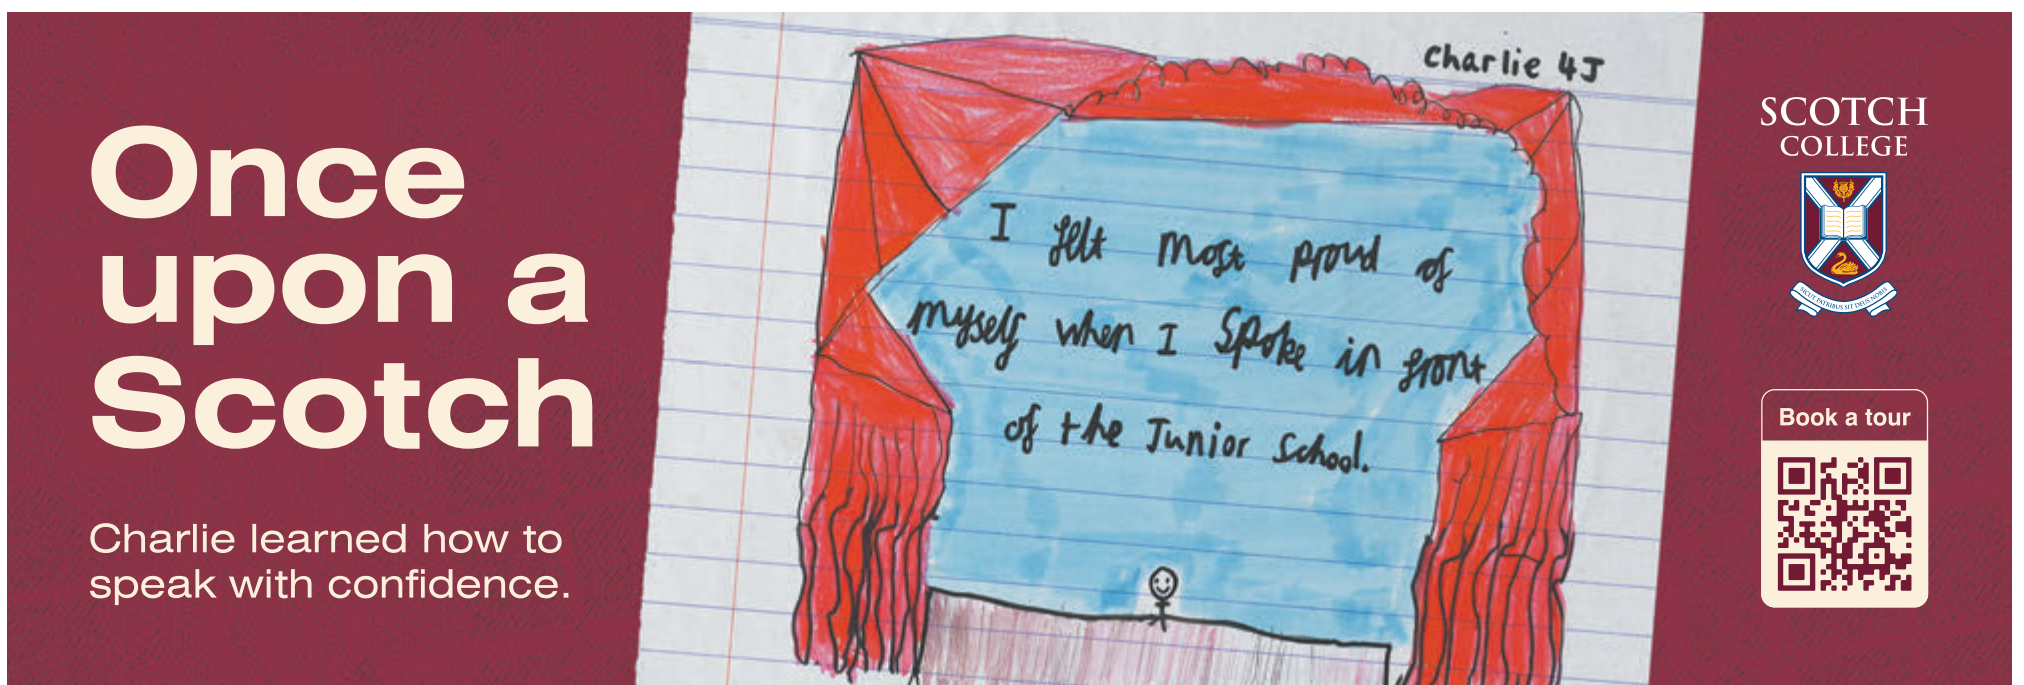 Once
upon a
Scotch
Charlie learned how to
speak with confidence.
Charlie 4J
I felt most proud of
myself when I Spoke in front
of the Junior School.
SCOTCH
COLLEGE
SICUT PATRIBUS SIT DEUS NOBIS
Book a tour